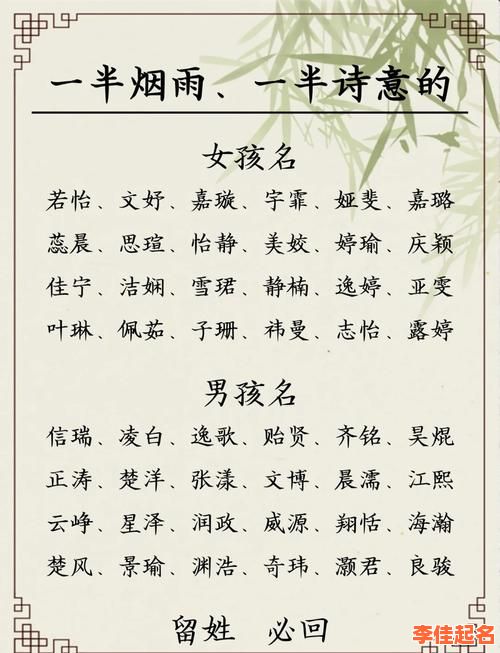 一半烟雨、一半诗意的
女孩名
若怡、文妤、嘉璇、宇霏、娅斐、嘉璐
蕊晨、思瑄、怡静、美姣、婷瑜、庆颖
佳宁、洁娴、雪珺、静楠、逸婷、亚雯
叶琳、佩茹、子珊、祎曼、志怡、露婷
男孩名
信瑞、凌白、逸歌、贻贤、齐铭、昊焜
正涛、楚洋、张漾、文博、晨濡、江熙
云峥、星泽、润政、威源、翔恬、海瀚
楚风、景瑜、渊浩、奇玮、灏君、良骏
留姓 必回
李佳起名